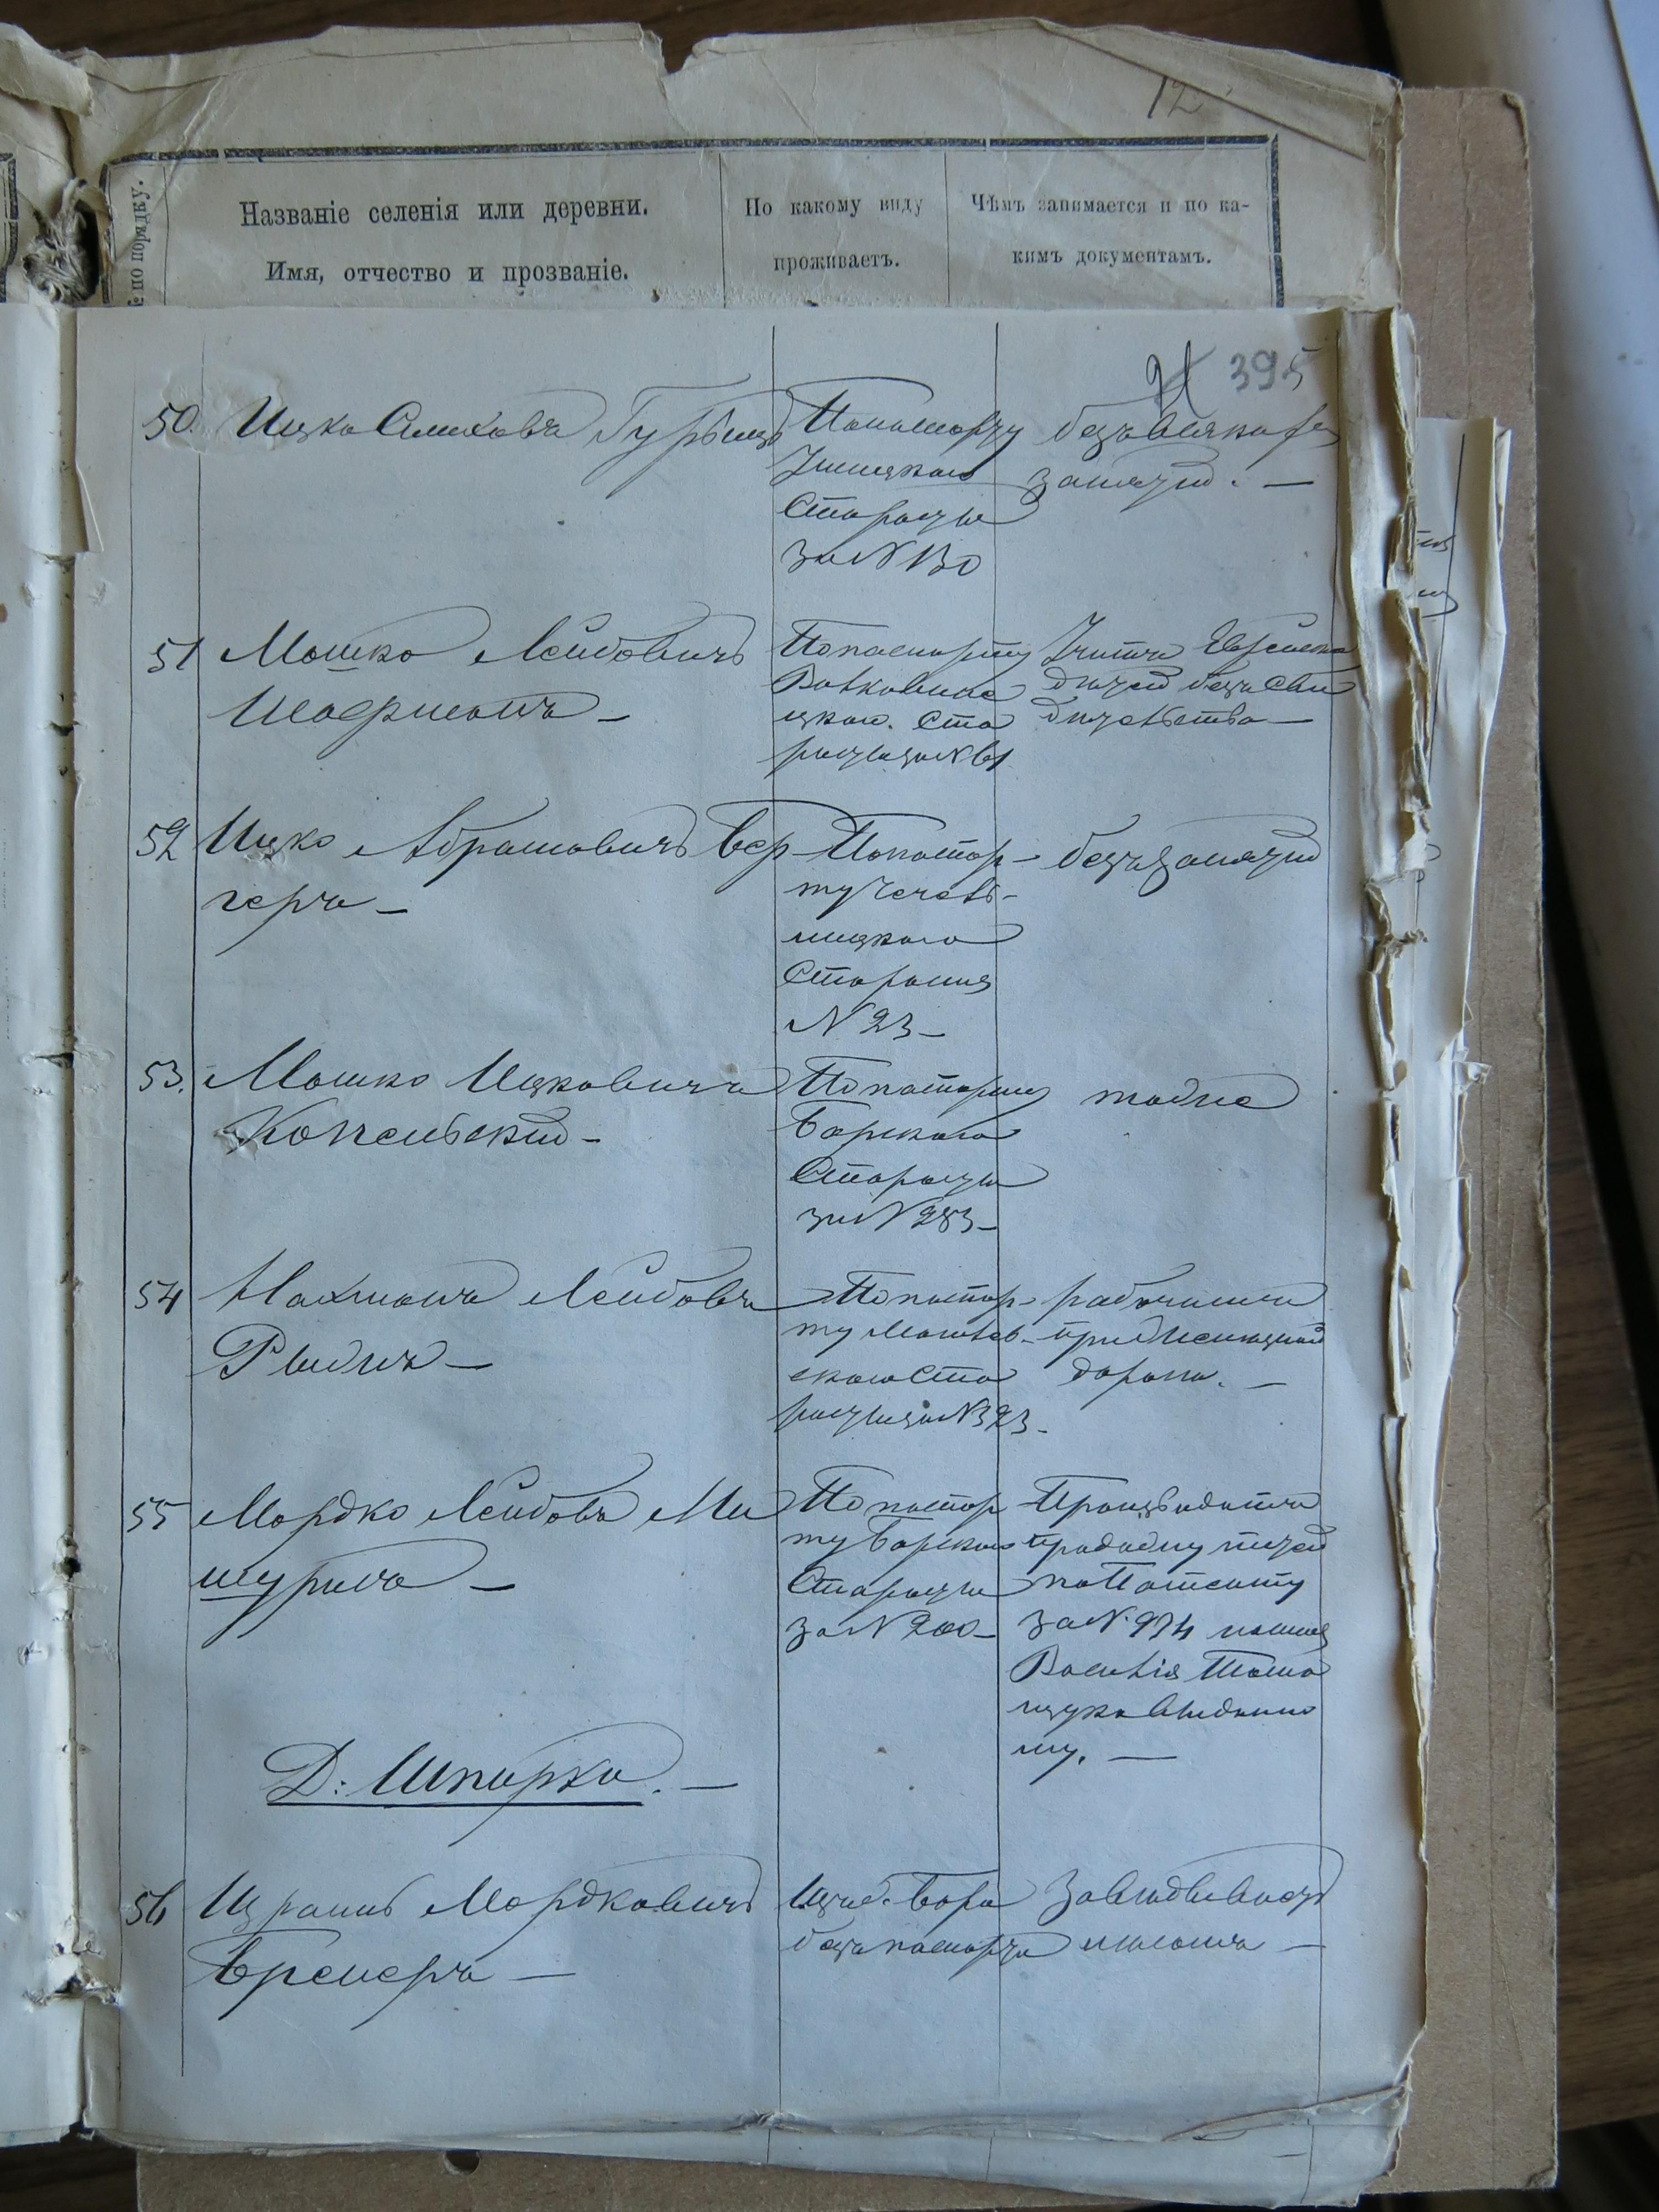 12
№ по порядку.
Названіе селенія или деревни.
Имя, отчество и прозваніе.
По какому виду
проживаетъ.
Чѣмъ занимается и по ка-
кимъ документамъ.
395
50. Ицко Симховъ Гурвицъ
По паспорту
Ушицкаго
Старосты
за № 130
безъ всякаго
занятія. —
51 Мошко Лейбовичъ
Шаерманъ —
По паспорту
Волковинe
цкаго. Ста
росты за № 61
Учитъ Еврейскихъ
дѣтей безъ сви
дѣтельства —
52 Ицко Абрамовичъ Вер
геръ —
По паспор-
ту
ницкаго
Старосты
№ 23 —
безъ занятія
53. Мошко Ицковичъ
Копельскій —
По паспорту
Барскаго
Старосты
за № 283 —
тоже
54 Нахманъ Лейбовъ
Рыдикъ —
По паспор-
ту
скаго Ста
росты за № 323 —
рабочимъ
при
дороги. —
55 Мордко Лейбовъ Ми
шуринъ —
По паспор
ту Барскаго
Старосты
за № 200 —
Производитъ
продажу питей
по Патенту
за № 974 на имя
Василія
выданно
му. —
Д: Шпарки. —
56 Израиль Мордковичъ
Бренеръ —
Изъ г. Бара
безъ паспорта
Завѣдываетъ
—